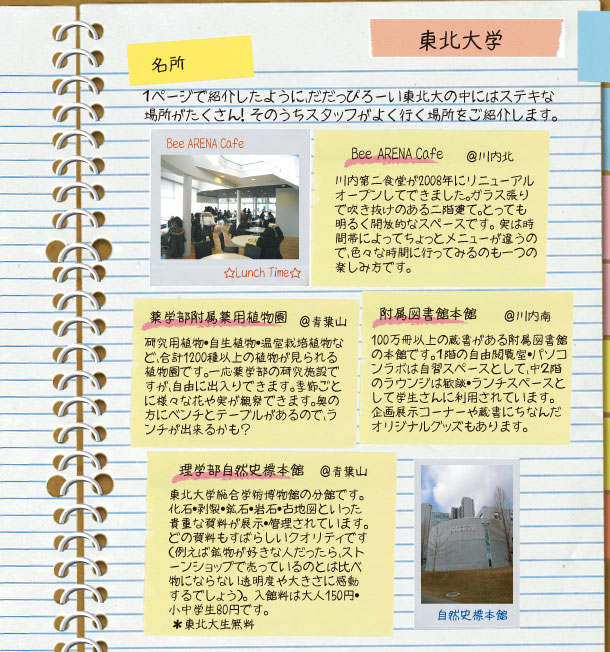 東北大学
名所
1ページで紹介したように、だだっぴろーい東北大の中にはステキな
場所がたくさん! そのうちスタッフがよく行く場所をご紹介します。
Bee ARENA Cafe
☆Lunch Time☆
Bee ARENA Cafe @川内北
川内第二食堂が2008年にリニューアル
オープンしてできました。ガラス張り
で吹き抜けのある二階建て。とっても
明るく開放的なスペースです。実は時
間帯によってちょっとメニューが違うの
で、色々な時間に行ってみるのも一つの
楽しみ方です。
薬学部附属薬用植物園 @青葉山
研究用植物•自生植物•温室栽培植物な
ど、合計1200種以上の植物が見られる
植物園です。一応薬学部の研究施設で
すが、自由に出入りできます。季節ごと
に様々な花や実が観察できます。奥の
方にベンチとテーブルがあるので、ラ
ンチが出来るかも?
附属図書館本館 @川内南
100万冊以上の蔵書がある附属図書館
の本館です。1階の自由閲覧室•パソコ
ンラボは自習スペースとして、中2階
のラウンジは歓談•ランチスペースと
して学生さんに利用されています。
企画展示コーナーや蔵書にちなんだ
オリジナルグッズもあります。
理学部自然史標本館 @青葉山
東北大学総合学術博物館の分館です。
化石•剥製•鉱石•岩石•古地図といった
貴重な資料が展示•管理されています。
どの資料もすばらしいクオリティです
(例えば鉱物が好きな人だったら、スト
ーンショップで売っているのとは比べ
物にならない透明度や大きさに感動
するでしょう)。入館料は大人150円•
小中学生80円です。
＊東北大生無料
自然史標本館